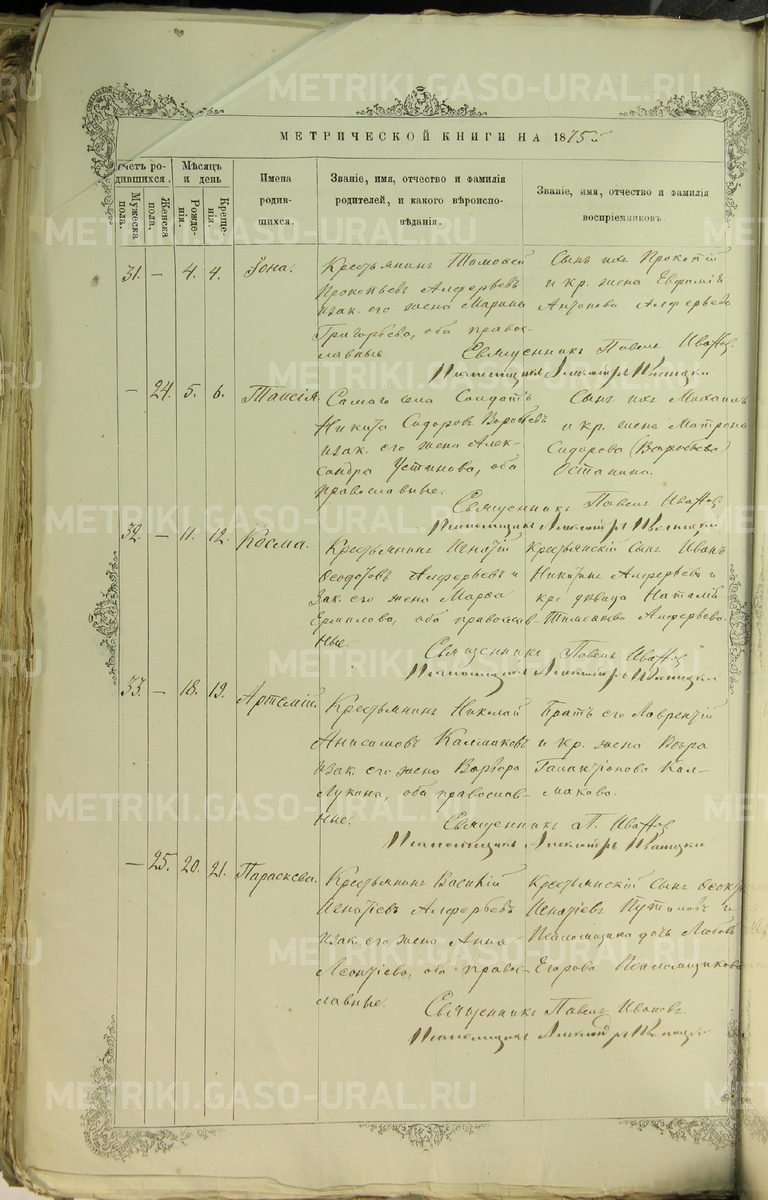 МЕТРИЧЕСКОЙ КНИГИ НА 1875й
Счетъ ро-
дившихся.
Мужеска
пола.
Женска
пола.
Мѣсяцъ
и день
Рожде-
нія.
Креще-
нія.
Имена
родив-
шихся.
Званіе, имя, отчество и фамилія
родителей, и какого вѣроиспо-
вѣданія.
Званіе, имя, отчество и фамилія
воспріемниковъ.
31. — 4. 4. Іона.
Крестьянинъ Тимофей
Прокопьевъ Алферьевъ
изак. его жена Марина
Григорьева, оба право-
славные
Сынъ ихъ Прокопій
и кр. жена Евфимія
Антонова Алферьева
Священникъ Павелъ Ивановъ.
Псаломщикъ Александръ
— 24. 5. 6. Таисія.
Самаго села Солдатъ
Никита Сидоровъ Воробьевъ
изак. его жена Алек-
сандра Устинова, оба
православные.
Сынъ ихъ Михаилъ
и кр. жена Матрона
Сидорова
Останина.
Священникъ Павелъ Ивановъ
Псаломщикъ Александръ
32. — 11. 12. Косма.
Крестьянинъ Игнатій
Ѳеодотовъ Алферьевъ и
зак. его жена Марѳа
Ермилова, оба православ-
ные.
Крестьянскій сынъ Иванъ
Никитинъ Алферьевъ и
кр. дѣвица Наталія
Тимофеева Алферьева.
Священникъ Павелъ Ивановъ
Псаломщикъ Александръ
33. — 18. 19. Артемій.
Крестьянинъ Николай
Анисимовъ Калмаковъ
изак. его жена Варвара
Лукина, оба православ-
ные.
Братъ его Лаврентій
и кр. жена Вѣра
Галактіонова Кал-
макова.
Священникъ П. Ивановъ
Псаломщикъ Александръ
— 25. 20. 21. Параскева.
Крестьянинъ Василій
Игнатіевъ Алферьевъ
изак. его жена Анна
Леонтіева, оба право-
славные.
Крестьянскій сынъ
Игнатіевъ и
Псаломщика дочь Любовь
Егорова Псаломщикова
Священникъ Павелъ Ивановъ.
Псаломщикъ Александръ
METRIKI.GASO-URAL.RU